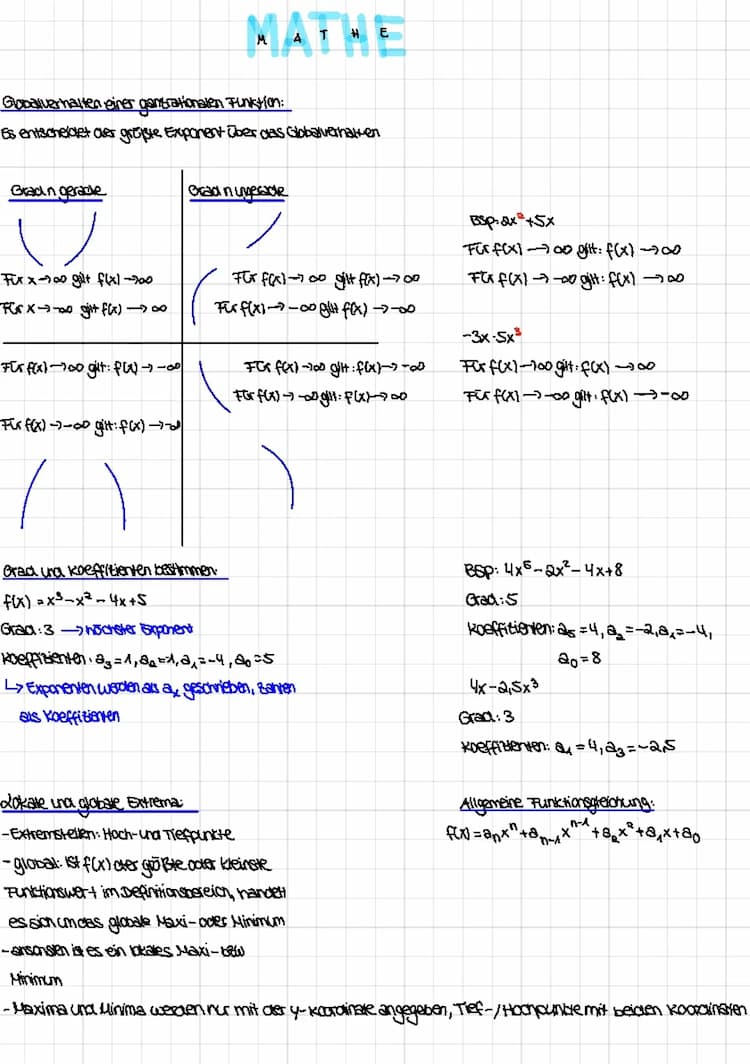 MATHE
M A T H E
Globalverhalten einer ganzrationalen Funktion:
Es entscheidet der größte Exponent über das Globalverhalten
Grad n gerade
Für x→∞ gilt f(x)→∞
Für x→-∞ gilt f(x)→∞
Grad n ungerade
Für f(x)→∞ gilt f(x)→∞
Für f(x)→-∞ gilt f(x)→-∞
Für f(x)→∞ gilt: f(x)→-∞
Für f(x)→-∞ gilt: f(x)→-∞
Für f(x)→∞ gilt: f(x)→-∞
Für f(x)→-∞ gilt: f(x)→∞
BSP: 2x²+5x
Für f(x)→∞ gilt: f(x)→∞
Für f(x)→-∞ gilt: f(x)→∞
-3x·5x³
Für f(x)→∞ gilt: f(x)→∞
Für f(x)→-∞ gilt: f(x)→-∞
Grad und Koeffitienten bestimmen:
f(x) = x³-x²-4x+5
Grad: 3 → höchster Exponent
Koeffizienten: a₃=1, a₂=1, a₁=-4, a₀=5
↳ Exponenten werden als aₓ geschrieben, Zahlen
als Koeffizienten
BSP: 4x⁵-2x²-4x+8
Grad: 5
Koeffizienten: a₅=4, a₂=-2, a₁=-4,
a₀=8
4x-2,5x³
Grad: 3
Koeffizienten: a₁=4, a₃=-2,5
Lokale und globale Extrema:
-Extremstellen: Hoch- und Tiefpunkte
-global: ist f(x) der größte oder kleinste
Funktionswert im Definitionsbereich, handelt
es sich um das globale Maxi- oder Minimum
-ansonsten ist es ein lokales Maxi- bzw
Minimum
-Maxima und Minima werden nur mit der y-Koordinate angegeben, Tief-/Hochpunkte mit beiden Koordinaten
Allgemeine Funktionsgleichung:
f(x)=aₙxⁿ+aₙ₋₁xⁿ⁻¹+a₂x²+a₁x+a₀